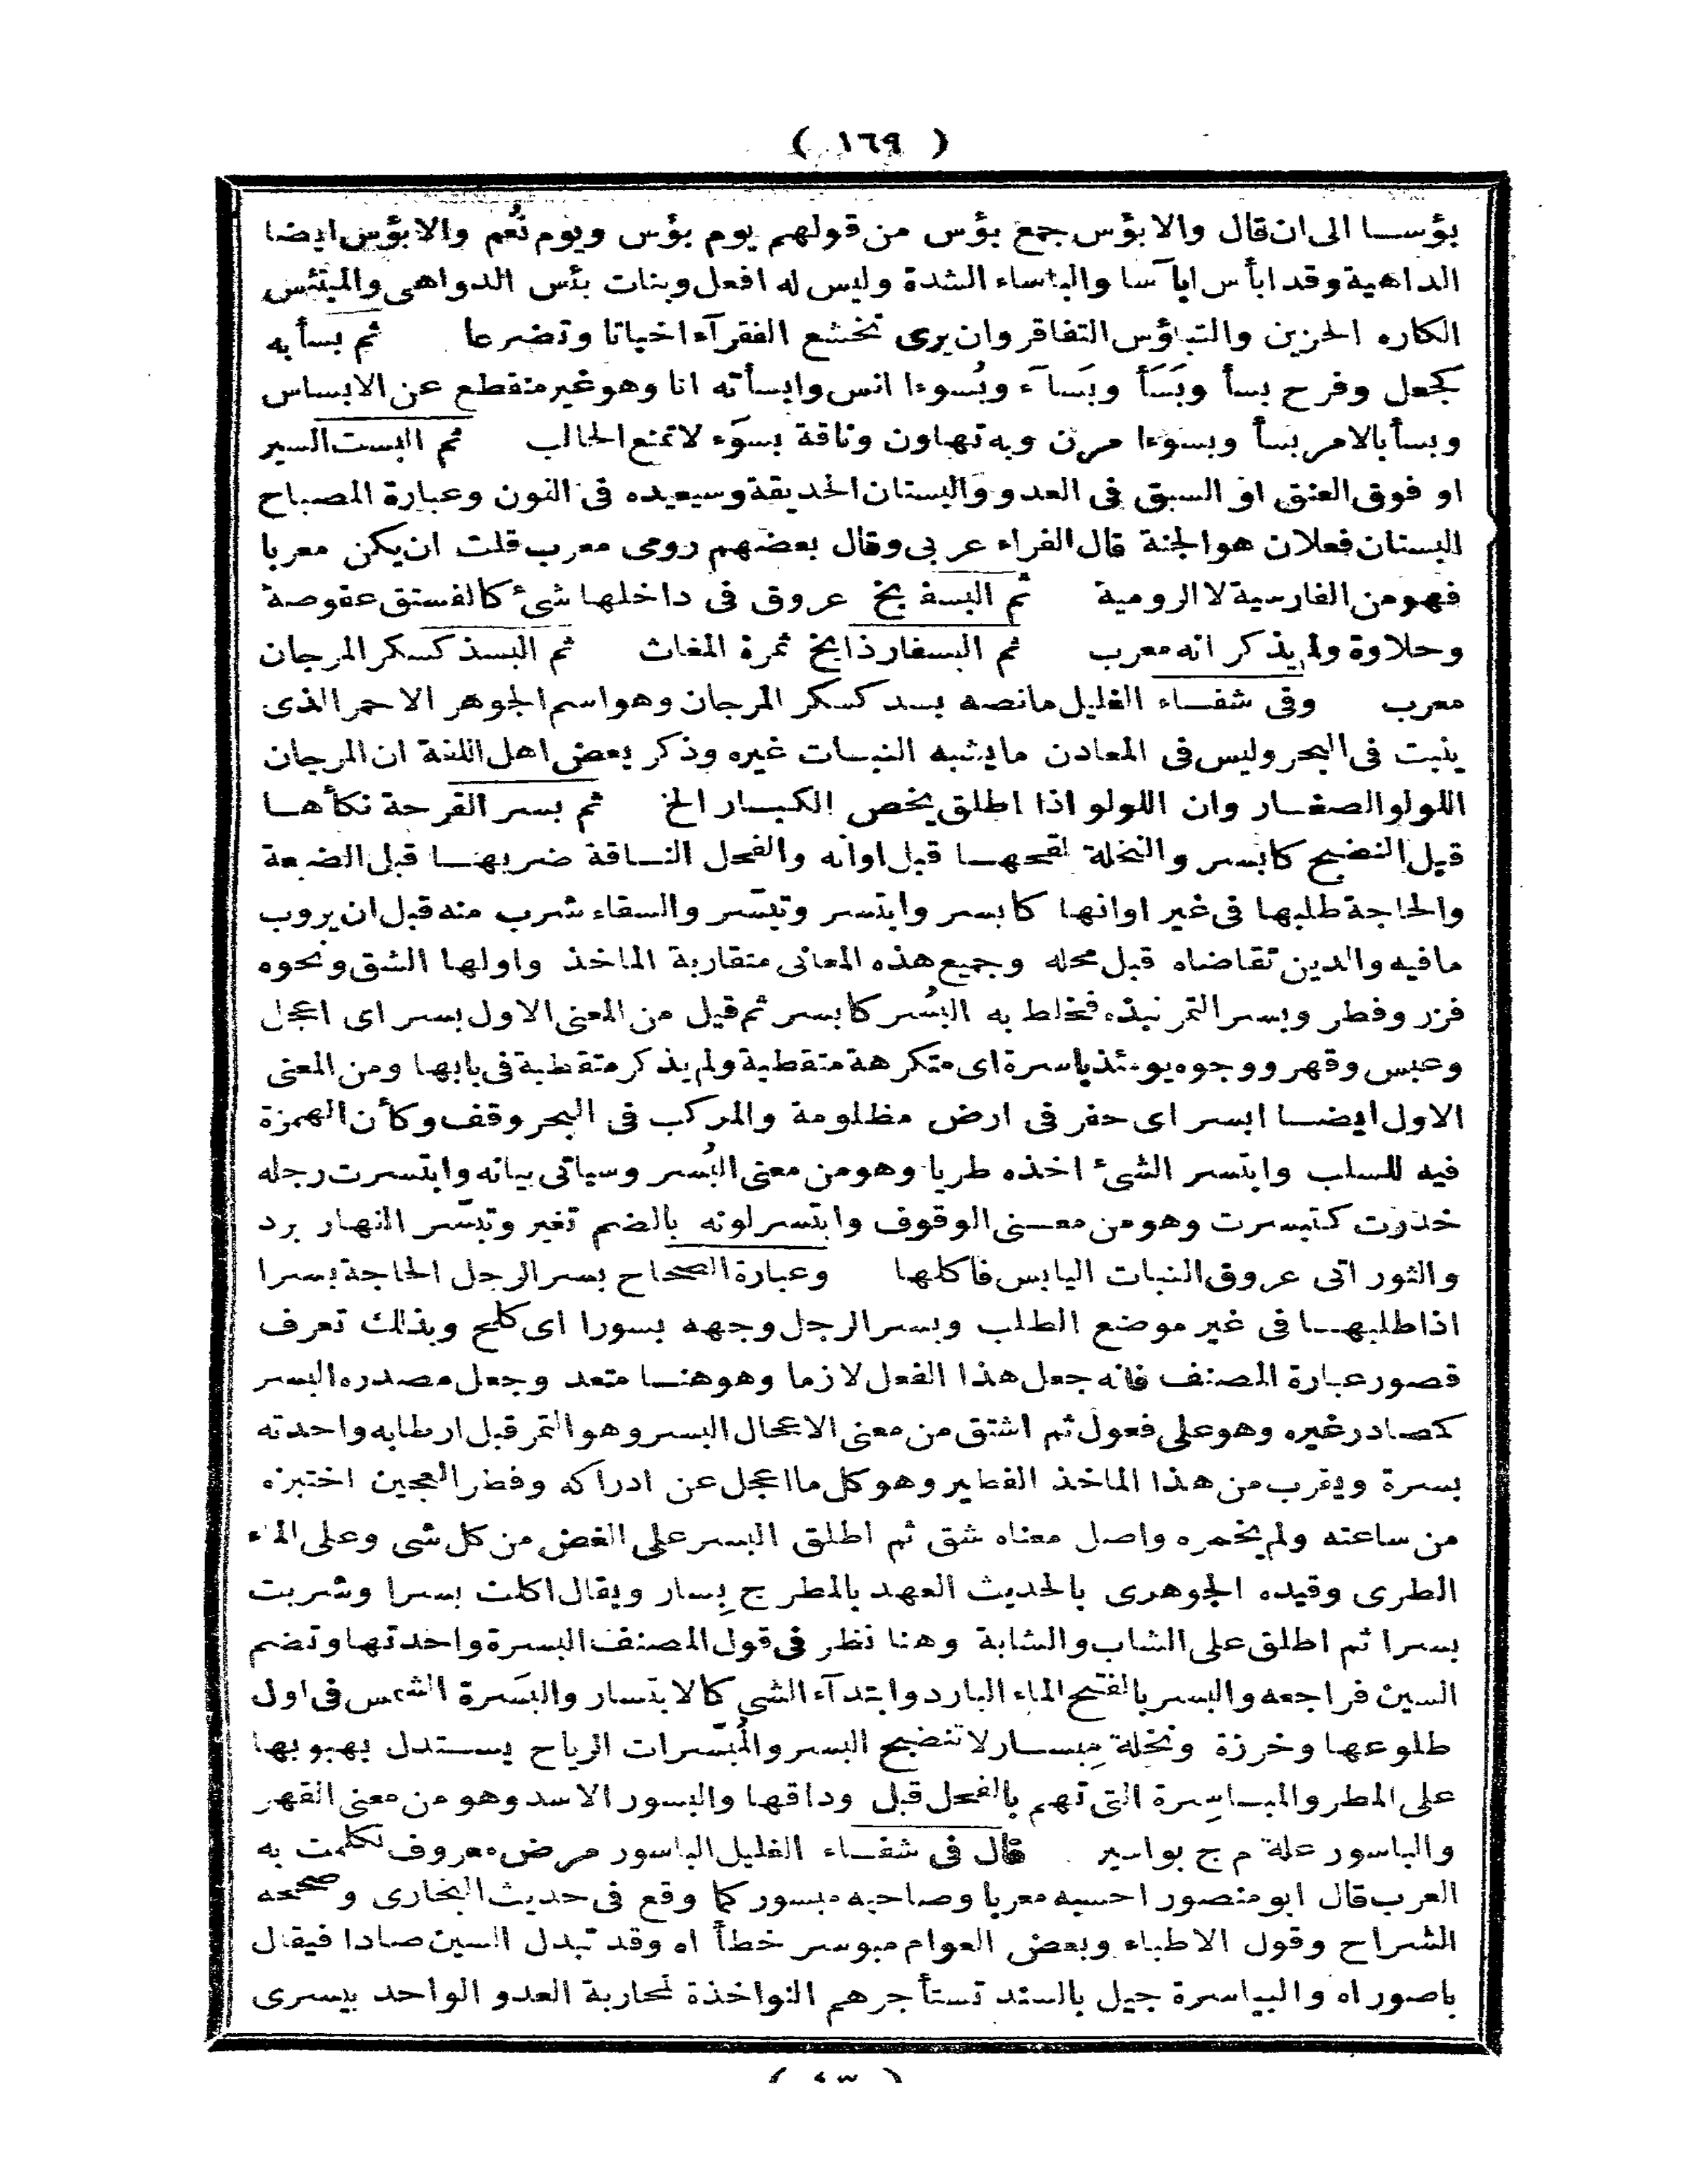 ( ١٦٩ )
بؤســا الى ان قال والابؤس جمع بؤس من قولهم يوم بؤس ويوم نُعم والابؤس ايضا
الداهية وقد ابأس ابآسا والباساء الشدة وليس له افعل وبنات بئس الدواهى والمبتئس
الكاره الحزين والتباؤس التفاقر وان يرى تخشع الفقرآء اخباتا وتضرعا ثم بسأ به
كجعل وفرح بسأ وبَسَأ وبَسآء وبُسوءا انس وابسأته انا وهو غير منقطع عن الابساس
وبسأ بالامر بسأ وبسوءا مرن وبه تهاون وناقة بسوَء لا تمنع الحالب ثم البست السير
او فوق العنق او السبق فى العدو والبستان الحديقة وسيعيده فى النون وعبارة المصباح
البستان فعلان هو الجنة قال الفراء عربى وقال بعضهم رومى معرب قلت ان يكن معربا
فهو من الفارسية لا الرومية ثم البسفايج عروق فى داخلها شئ كالفستق عفوصة
وحلاوة ولم يذكر انه معرب ثم البسفارذانج ثمرة المغاث ثم البسذ كسكر المرجان
معرب وفى شفــاء الغليل مانصه بسد كسكر المرجان وهو اسم الجوهر الاحمر الذى
ينبت فى البحر وليس فى المعادن ما يشبه النبــات غيره وذكر بعض اهل اللغة ان المرجان
اللولو الصغــار وان اللولو اذا اطلق يخص الكبــار الخ ثم بسر القرحة نكأهــا
قبل النضيج كابسر والنخلة لقحهــا قبل اوانه والفحل النــاقة ضربهــا قبل الضبعة
والحاجة طلبها فى غير اوانها كابسر وابتسر وتبسّر والسقاء شرب منه قبل ان يروب
مافيه والدين تقاضاه قبل محله وجميع هذه المعانى متقاربة الماخذ واولها الشق ونحوه
فزر وفطر وبسر التمر نبذه فخلط به البُسر كابسر ثم قيل من المعنى الاول بسر اى اعجل
وعبس وقهر ووجوه يومئذ باسرة اى متكرهة متقطبة ولم يذكر متقطبة فى بابها ومن المعنى
الاول ايضــا ابسر اى حفر فى ارض مظلومة والمركب فى البحر وقف وكأن الهمزة
فيه للسلب وابتسر الشئ اخذه طريا وهو من معنى البُسر وسياتى بيانه وابتسرت رجله
خدرت كتبسرت وهو من معــنى الوقوف وابتسر لونه بالضم تغير وتبسّر النهار برد
والثور اتى عروق النبات اليابس فاكلها وعبارة الصحاح بسر الرجل الحاجة بسرا
اذا طلبهــا فى غير موضع الطلب وبسر الرجل وجهه بسورا اى كلح وبذلك تعرف
قصور عبارة المصنف فانه جعل هذا الفعل لازما وهو هنــا متعد وجعل مصدره البسر
كمصادر غيره وهو على فعول ثم اشتق من معنى الاعجال البسر وهو التمر قبل ارطابه واحدته
بسرة ويقرب من هذا الماخذ الفطير وهو كل ما اعجل عن ادراكه وفطر العجين اختبزه
من ساعته ولم يخمره واصل معناه شق ثم اطلق البسر على الغض من كل شى وعلى الماء
الطرى وقيده الجوهرى بالحديث العهد بالمطر ج بِسار ويقال اكلت بسرا وشربت
بسرا ثم اطلق على الشاب والشابة وهنا نظر فى قول المصنف البسرة واحدتها وتضم
السين فراجعه والبسر بالفتح الماء البارد وابتدآء الشى كالابتسار والبَسَرة الشمس فى اول
طلوعها وخرزة ونخلة مِبســار لا تنضيج البسر والمُبَسِّرات الرياح يســتدل بهبوبها
على المطر والمبــاسِرة التى تهم بالفحل قبل وداقها والبسور الاسد وهو من معنى القهر
والباسور علة م ج بواسير قال فى شفــاء الغليل الباسور مرض معروف تكلمت به
العرب قال ابو منصور احسبه معربا وصاحبه مبسور كما وقع فى حديث البخارى وصححه
الشراح وقول الاطباء وبعض العوام مبوسر خطأ اه وقد تبدل السين صادا فيقال
باصور اه والبياسرة جيل بالسند تستأجرهم النواخذة لمحاربة العدو الواحد بيسرى
( ٤٣ )